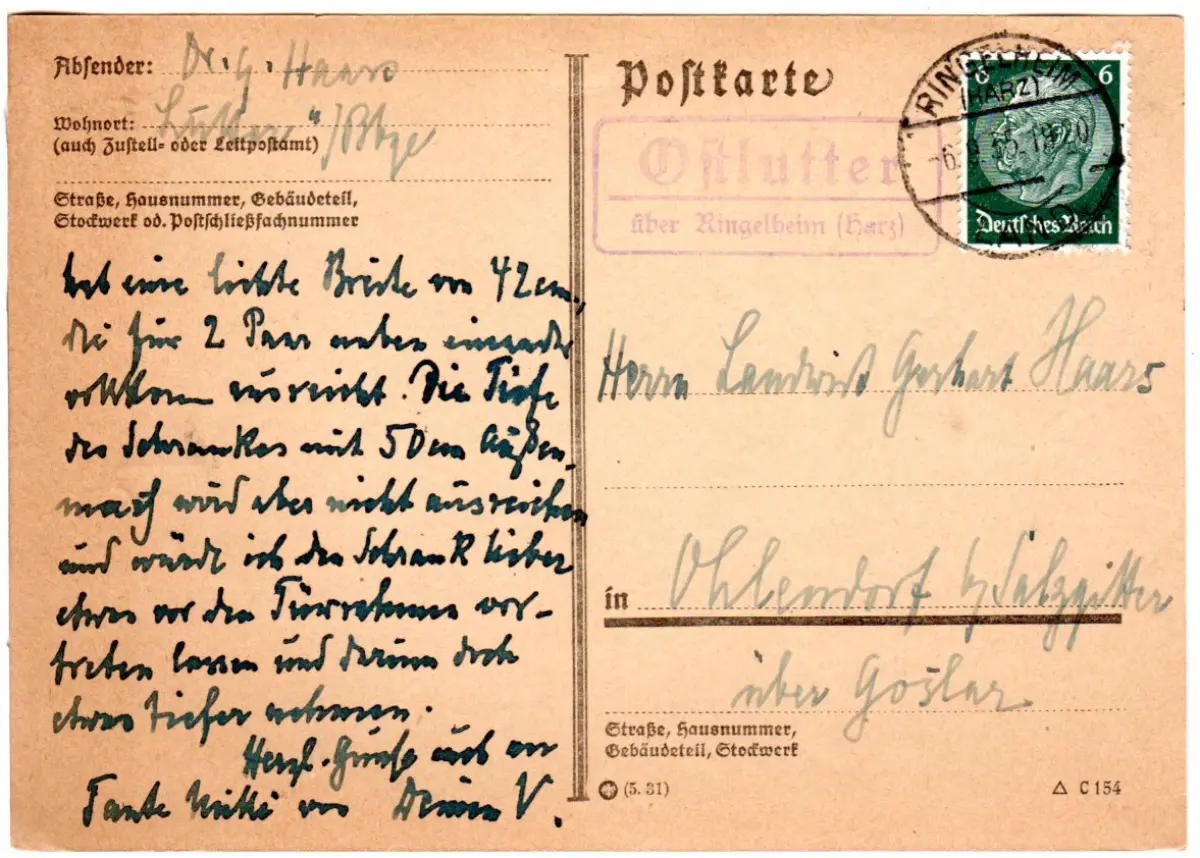 Absender: Dr. G. Haars
Wohnort: Lutter a/Bbge
(auch Zustell- oder Leitpostamt)
Straße, Hausnummer, Gebäudeteil,
Stockwerk od. Postschließfachnummer
hat eine lichte Breite von 42 cm,
die für 2 Paar neben einander
vollkom ausreicht. Die Tiefe
des Schrankes mit 50 cm Außen-
maß wird aber nicht ausreichen
und würde ich den Schrank lieber
etwas vor den Türrahmen vor-
treten lassen und darum doch
etwas tiefer nehmen.
Herzl. Grüße auch an
Tante von Deinem V.
Postkarte
Ostlutter
über Ringelheim (Harz)
RINGELHEIM
(HARZ)
-6.9.35.19-20
LAND
6 6
Deutsches Reich
Herrn Landwirt Gerhart Haars
in Ohlendorf b/ Salzgitter
über Goslar
Straße, Hausnummer,
Gebäudeteil, Stockwerk
(5. 31)
Δ C 154